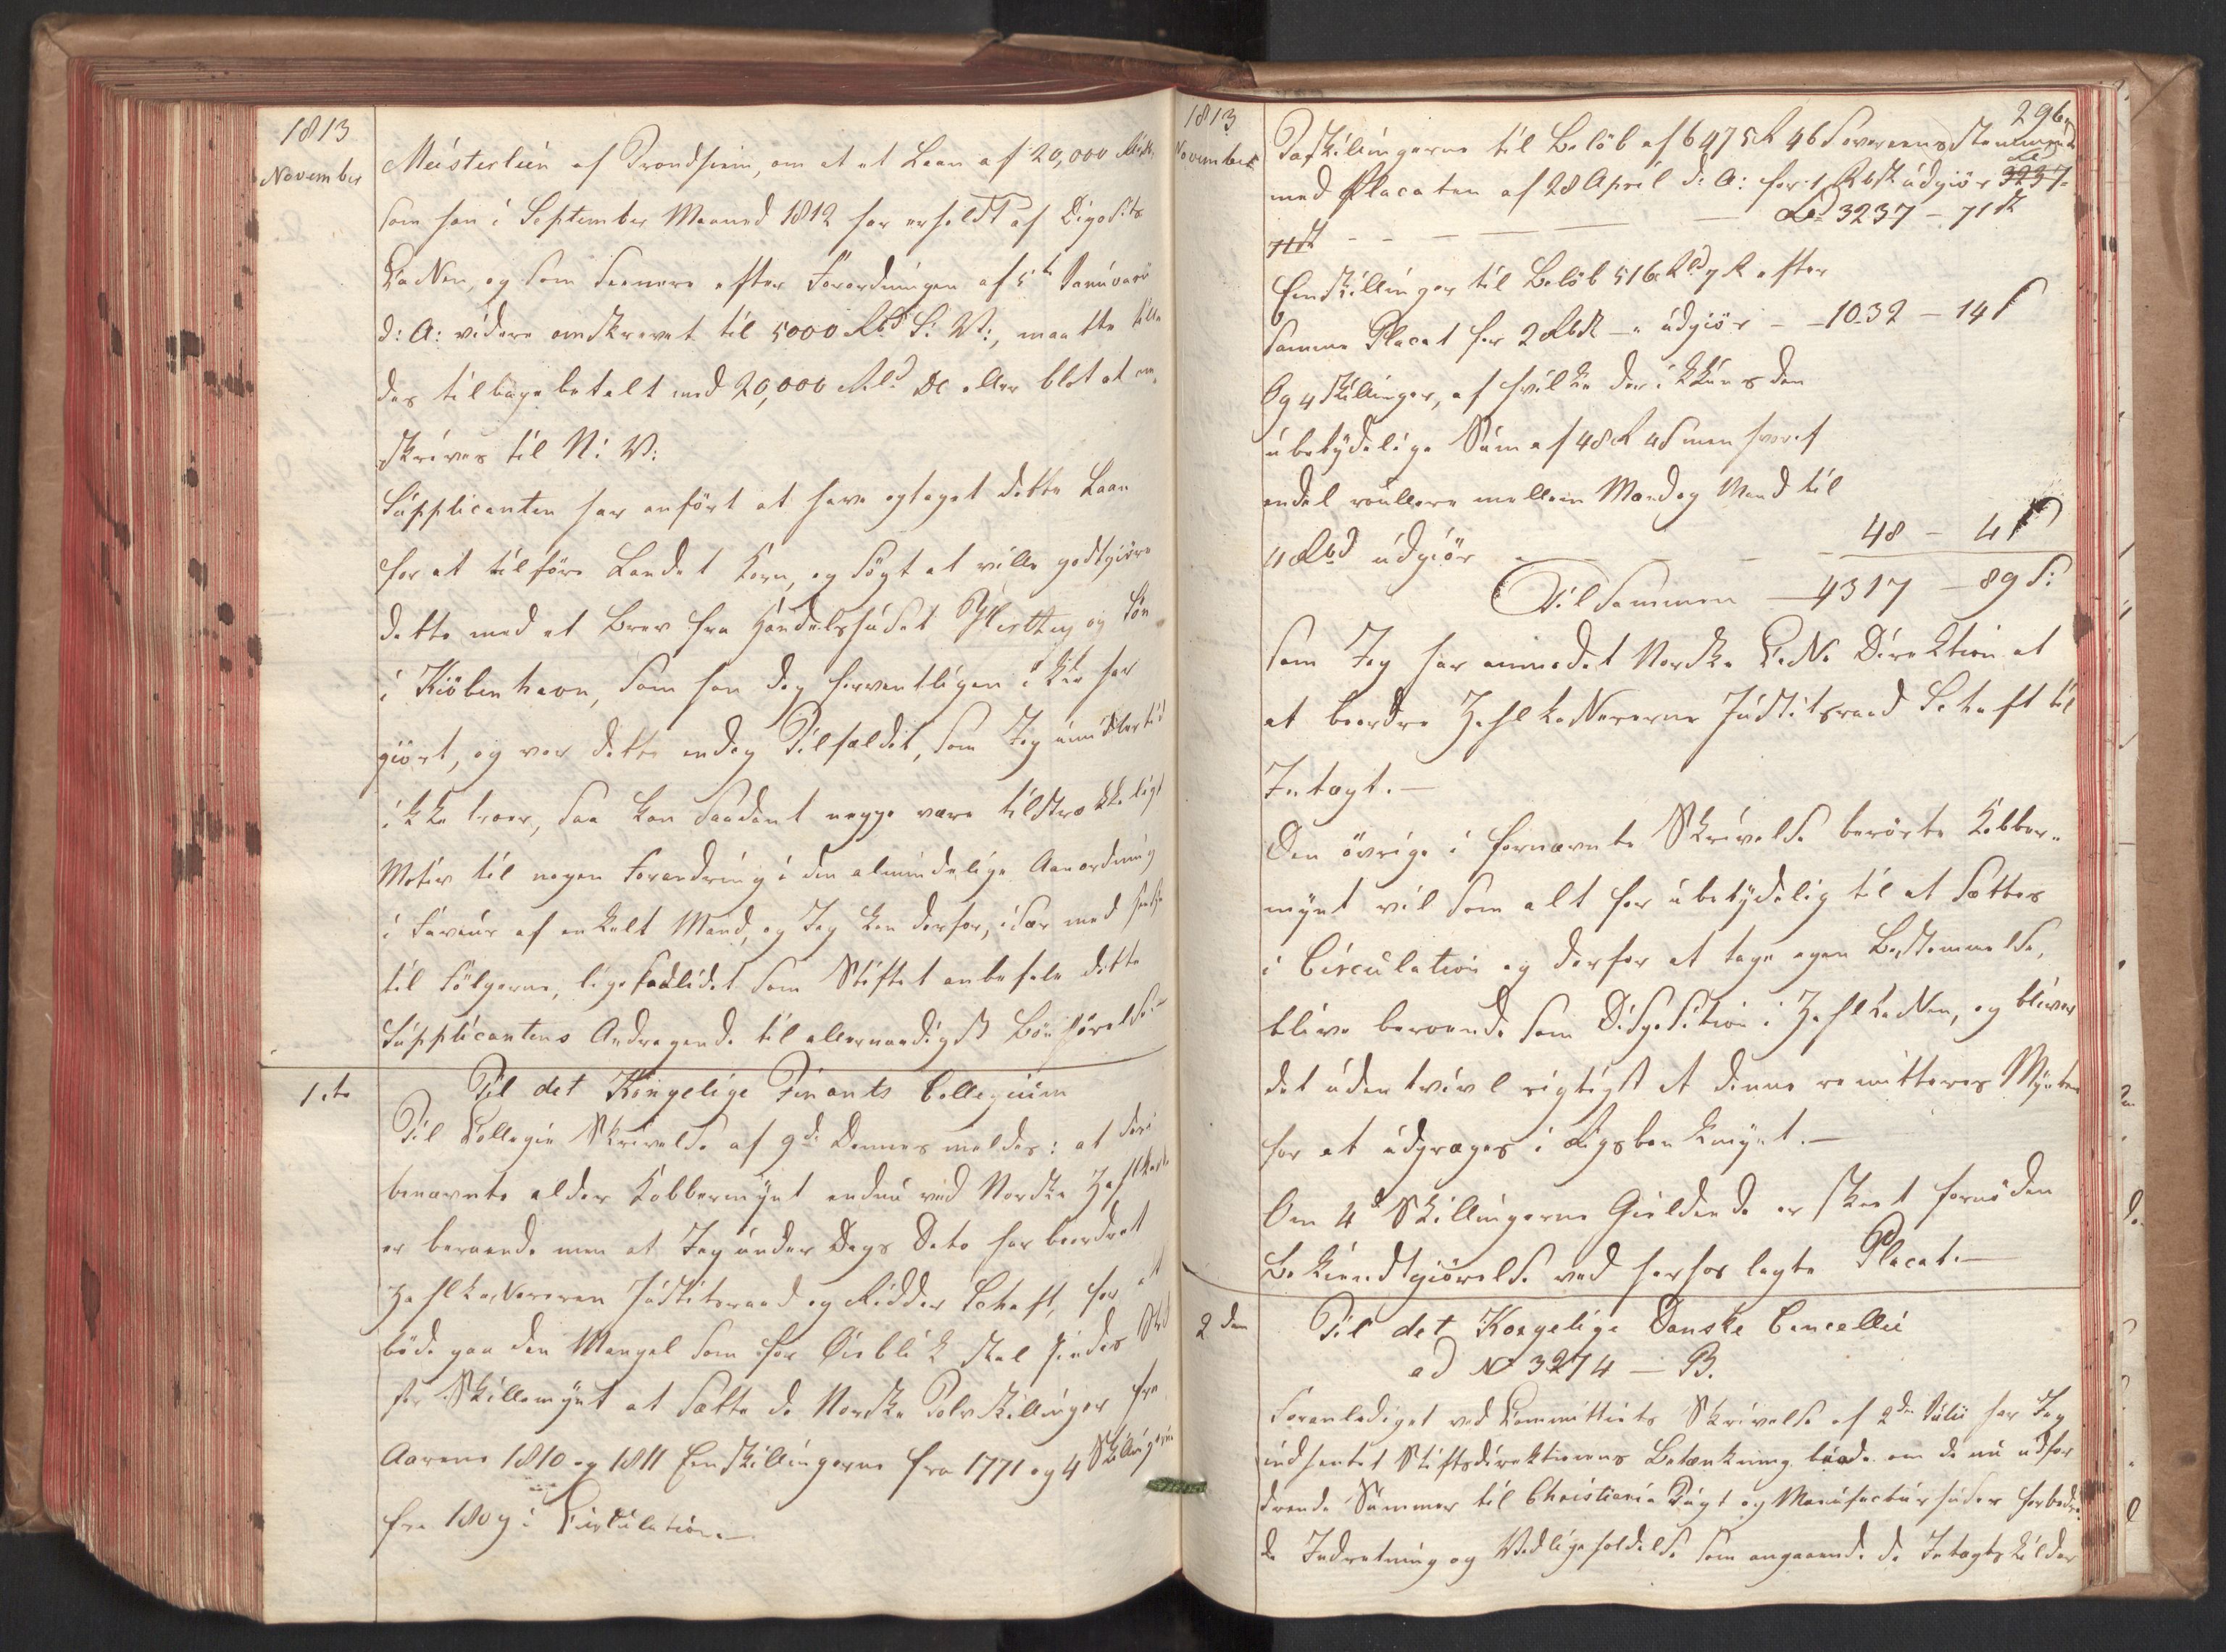 1813
November
Meisterlein af Trondhiem, om at et Laan af 20,000 Rdlr,
som han i September Maaned 1812 har erholdt af Deposito
Cassen, og som senere efter Forordningen af 5te Januari
d: A: videre omskrevet til 5000 Rbd S: V:, maatte tilla
des tilbagebetalt med 20,000 Rd DC eller blot at om,
skrives til N: V:
Supplicanten har anført at have optaget dette Laan
for at tilføre Landet Korn, og søgt at ville godtgiøre
dette med et Brev fra Handelshuset og Søn
i Kiöbenhavn, som han dog formentligen ikke har
giört, og var dette endog Tilfældet, som Jeg imidlertid
ikke troer, saa kan saadant neppe være tilstrækkeligt
Motiv til nogen Forandring i den almindelige Anordning
i Faveur af enkelt Mand, og Jeg kan derfor, især med Hensyn
til Følgerne, ligesaalidet som Stiftet anbefale dette
Supplicantens Andragende til allernaadigst Bönhørelse.-
1ste
Til det Kongelige Finants Collegium
Til Collegii Skrivelse af 9de Dennes meldes: at deri
benævnte ældre Kobbermynt endnu ved Norske Zahlkasse
er beroende men at Jeg under Dags Dato har beordret
Zahlkassereren Justitsraad og Ridder Schaft, for at
bøde paa den Mangel som for Øieblik skal findes Sted
for Skillemynt at sætte de Norske Tolvskillinger fra
Aarene 1810 og 1811 Eenskillingerne fra 1771 og 4 Skillingerne
fra 1809 i Circulation.-
1813
November
296.
Toskillingerne til Beløb af 6475 R 46 s overeensstemmende
med Placaten af 28 April d: A: for 1 Rbsk udgiör 3237-
71 sk - - - - - Rd 3237 - 71 sk
Eenskillinger til Belöb 516 Rd 7 s efter
samme Placat for 2 Rbsk - udgiör - - 1032 - 14 s
Og 4 Skillinger, af hvilke der ikkuns den
ubetydelige Sum af 48 R 4 s men hvoraf
endel roullere mellem Mand og Mand til
4 Rbs udgiör - - - 48 - 4 s
Tilsammen - 4317 - 89 s:
som Jeg har anmodet Norske Direktion at
at beordre Zahlkassererne Justitsraad Schaft til
Indtægt.-
Den övrige i fornævnte Skrivelse berørte Kobber-
mynt vil som alt for ubetydelig til at sættes
i Circulation og derfor at tage egen Bestemmelse,
blive beroende som Disposition i Zahlkassen, og bliver
det uden tvivl rigtigst at denne remitteres Mynten
for at udpræges i Rigsbankmynt.-
Om 4d Skillingerne Gieldende er skeet fornöden
Bekiendtgiörelse ved herhos lagte Placat.-
2den
Til det Kongelige Danske Cancellie
ad No 3274 - B.
Foranlediget ved Committeets Skrivelse af 2den Julii har Jeg
indhentet Stiftsdirektionens Betænkning baade om de nu udfor
drende Summer til Christiania Tugt og Manufacturhuses forbedre-
de Indretning og Vedligeholdelse som angaaende de Indtægtskilder